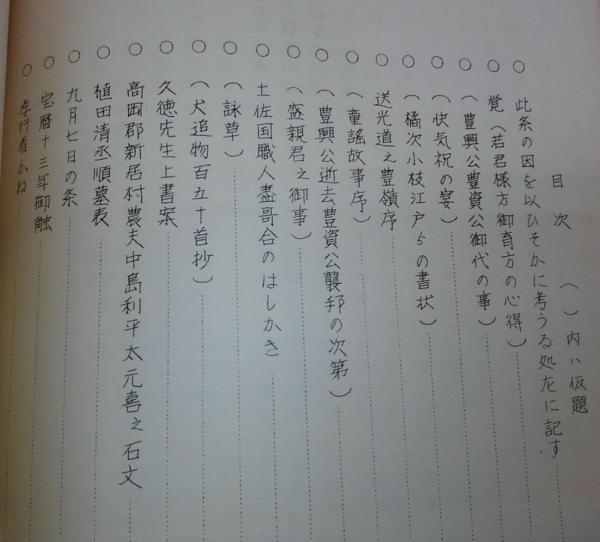 目次
( )内ハ仮題
○ 此条の因を以ひそかに考うる処左に記す
○ 覚(若君様方御育方の心得)
○ (豊興公豊資公御代の事)
○ (快気祝の宴)
○ (橘次小枝江戸ゟの書状)
○ 送光道之豊嶺序
○ (童謡故事序)
○ (豊興公逝去豊資公襲邦の次第)
○ (盛親君之御事)
○ 土佐国職人盡哥合のはしかき
○ (詠草)
○ (犬追物百五十首抄)
○ 久徳先生上書案
○ 高岡郡新居村農夫中島利平太元喜之石文
○ 植田清丞順墓表
○ 九月七日の条
○ 宝暦十三年御触
○ 奉行者かね